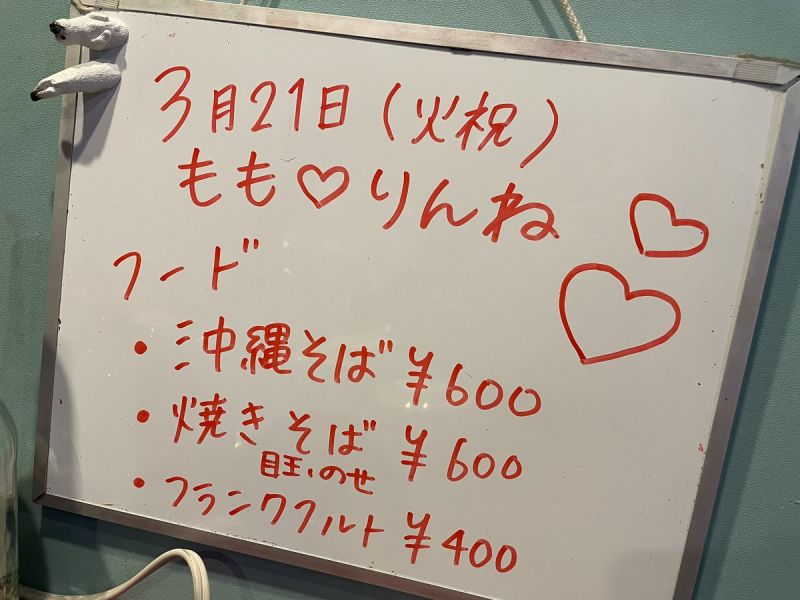 3月21日(火祝)
もも♡りんね
フード
・沖縄そば ¥600
・焼きそば ¥600
目玉のせ
・フランクフルト ¥400